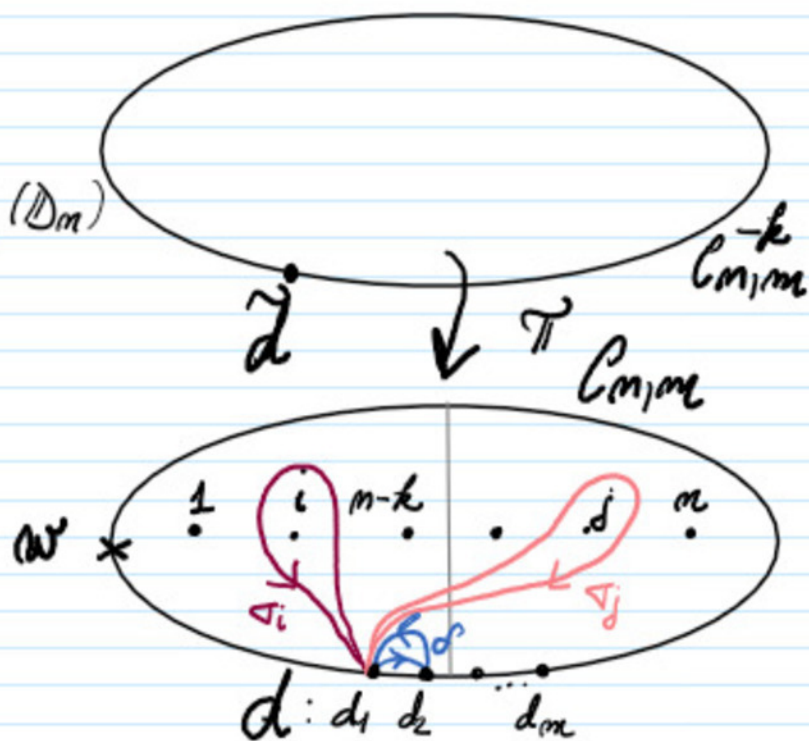 (𝔻ₙ)
C̃ₙ,ₘ⁻ᵏ
d̃
π
Cₙ,ₘ
1 i n-k j n
w
σᵢ δ σⱼ
d : d₁ d₂ ... dₘ